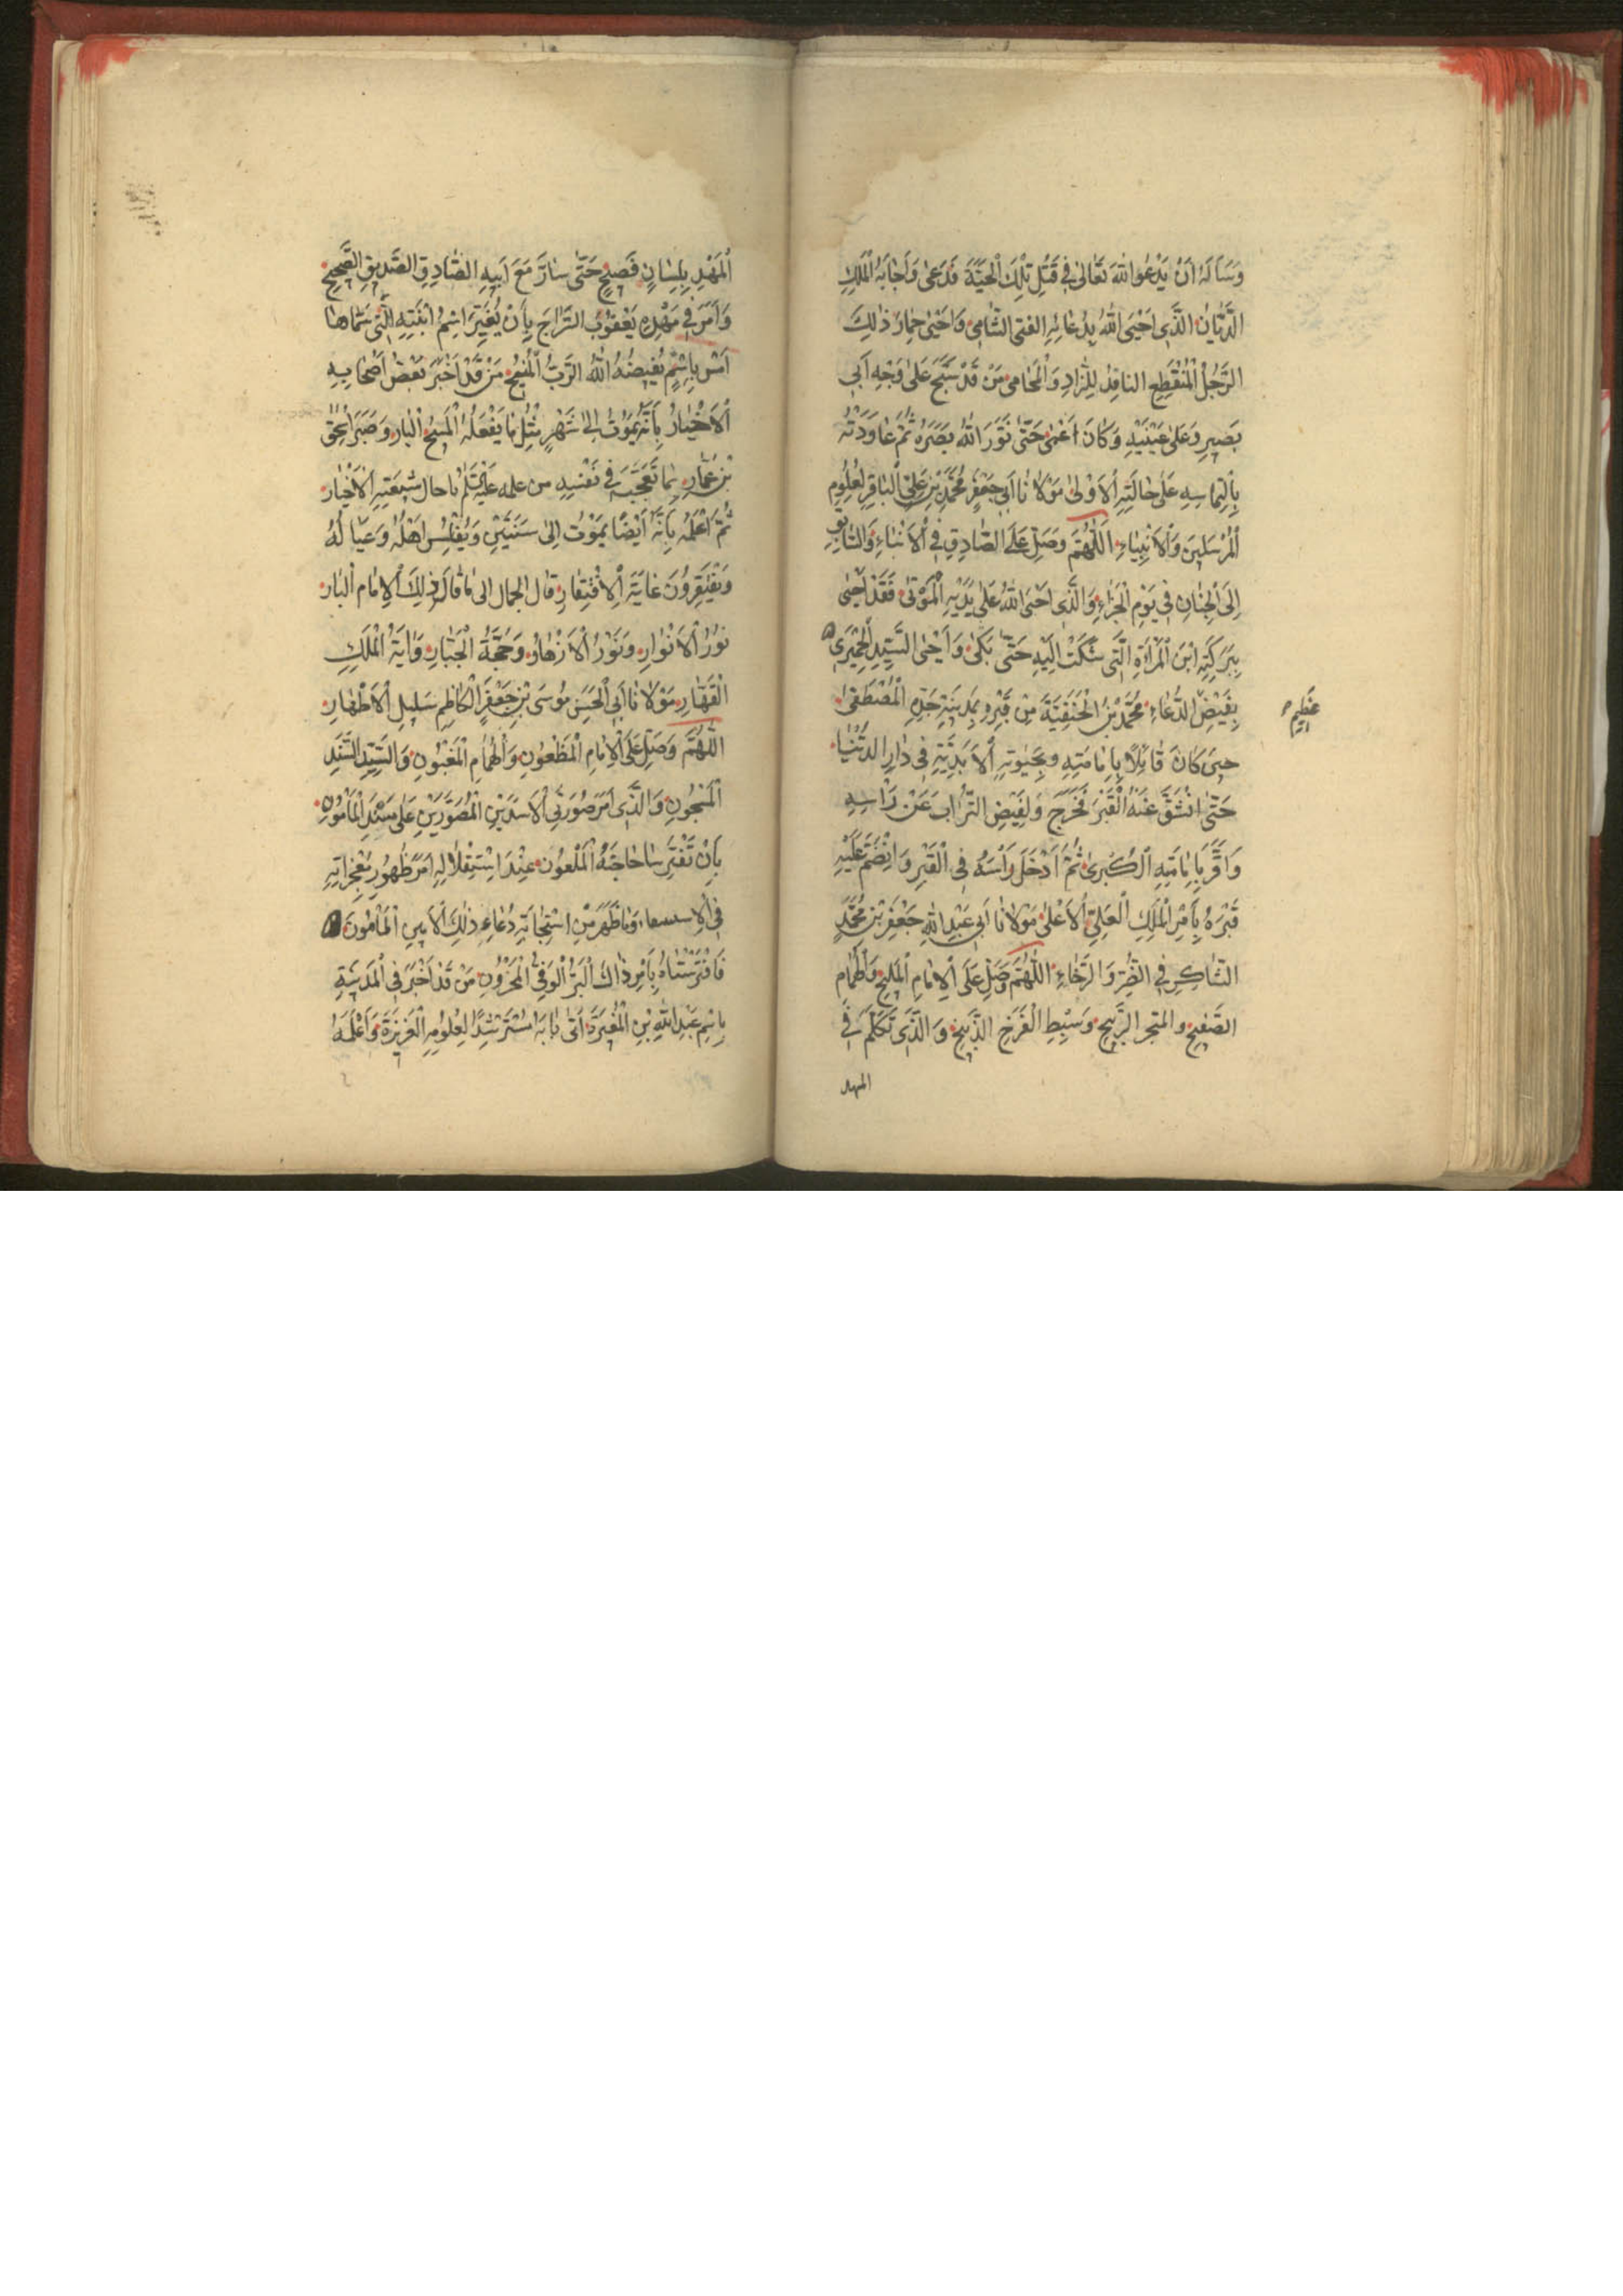 وَسَأَلَهُ اَنْ يَدْعُوَ اللّٰهَ تَعَالىٰ فِي قَتْلِ تِلْكَ الْحَيَّةَ فَدَعىٰ وَاَجَابَهُ الْمَلِكِ
الدَّيَّانُ الَّذِي اَحْيَى اللّٰهُ بِدُعَائِهِ الفتى الشَّامِي وَاَحْيىٰ حِمَارَ ذٰلِكَ
الرَّجُلُ الْمُنْقَطِعِ الناقد لِلزَّادِ وَالْحَامِي مَنْ قَدْ مَسَحَ عَلىٰ وَجْهِ اَبِي
بَصِيرٍ وَعَلىٰ عَيْنَيْهِ وَكَانَ اَعْمىٰ حَتّىٰ نَوَّرَ اللّٰهُ بَصَرَهُ ثُمَّ عَاوَدَتْهُ
بِالْتِمَاسِهِ عَلىٰ حَالَتِهِ الْاُولىٰ مَوْلَانَا اَبِي جَعْفَرٍ مُحَمَّدِ بْنِ عَلِيٍّ الْبَاقِرِ لِعُلُومِ
الْمُرْسَلِينَ وَالْاَنْبِيَاءِ اَللّٰهُمَّ وَصَلِّ عَلَى الصَّادِقِ فِي الْاَنْبَاءِ وَالسَّابِقِ
اِلَى الْجِنَانِ فِي يَوْمِ الْجَزَاءِ وَالَّذِي اَحْيَى اللّٰهُ عَلىٰ يَدَيْهِ الْمَوْتىٰ فَقَدْ اَحْيىٰ
بِبَرَكَتِهِ ابْنَ الْمَرْاَةِ الَّتِي شَكَتْ اِلَيْهِ حَتّىٰ بَكىٰ وَاَحْيىٰ السَّيِّدِ الْحِمْيَرِي
بِفَيْضِ الدُّعَاءِ مُحَمَّدَ بْنَ الْحَنَفِيَّةَ مِنْ قَبْرِهِ بِمَدِينَةِ جَدِّهِ الْمُصْطَفىٰ
عَظِيم
حِينَ كَانَ قَائِلًا بِاِمَامَتِهِ وَبِحَيٰوتِهِ الْاَبَدِيَّةِ فِي دَارِ الدُّنْيَا
حَتّىٰ انْشَقَّ عَنْهُ الْقَبْرُ فَخَرَجَ وَيَنْفُضُ التُّرَابَ عَنْ رَاْسِهِ
وَاَقَرَّ بِاِمَامَتِهِ الْكُبْرىٰ ثُمَّ اَدْخَلَ رَاْسَهُ فِي الْقَبْرِ وَانْضَمَّ عَلَيْهِ
قَبْرُهُ بِاَمْرِ الْمَلِكِ الْعَلِيِّ الْاَعْلىٰ مَوْلَانَا اَبِي عَبْدِ اللّٰهِ جَعْفَرِ بْنِ مُحَمَّدٍ
الشَّاكِرِ فِي الضُّرِّ وَالرَّخَاءِ اَللّٰهُمَّ وَصَلِّ عَلَى الْاِمَامِ الْمَلِيحِ وَالْهُمَامِ
الصَّفِيحِ والمتجر الرَّبِيحِ وَسِبْطِ الْفَرْخِ الذَّبِيحِ وَالَّذِي تَكَلَّمَ فِي
المهد
الْمَهْدِ بِلِسَانٍ فَصِيحٍ حَتّىٰ سَارَّ مَعَ اَبِيهِ الصَّادِقِ الصَّدِيقِ الصَّحِيحِ
وَاَمَرَ فِي مَهْدِهِ يَعْقُوبَ السَّرَّاجَ بِاَنْ يُغَيِّرَ اسْمَ ابْنَتِهِ الَّتِي سَمَّاهَا
اَمْسِ بِاسْمٍ يُبْغِضُهُ اللّٰهُ الرَّبُّ الْمُنِيحُ مَنْ قَدْ اَخْبَرَ بَعْضَ اَصْحَابِهِ
الْاَخْيَارَ بِاَنَّهُ يَمُوتُ اِلىٰ شَهْرٍ مِثْلِ مَا يَفْعَلُهُ الْمَسِيحُ الْبَار وَصَبَرَ اِسْحٰقَ
بْنَ عَمَّارٍ بِمَا تَعَجَّبَ فِي نَفْسِهِ من علمه عليه السَّلَم باحال شِيعَتِهِ الْاَخْيَار
ثُمَّ اَعْلَمَهُ بِاَنَّهُ اَيْضًا يَمُوتُ اِلىٰ سَنَتَيْنِ وَيُفْلِسُ اَهْلُهُ وَعِيَالُهُ
وَيَفْتَقِرُونَ غَايَةَ الْاِفْتِقَارِ فَال الحال الى مَا قَالَ ذٰلِكَ الْاِمَام الْبَار
نُورُ الْاَنْوَارِ وَنَوْرُ الْاَزْهَارِ وَحُجَّةُ الْجَبَّارِ وَاٰيَةُ الْمَلِكِ
الْقَهَّارِ مَوْلَانَا اَبِي الْحَسَنِ مُوسَى بْنِ جَعْفَرٍ الْكَاظِمِ سَلِيلِ الْاَطْهَارِ
اَللّٰهُمَّ وَصَلِّ عَلَى الْاِمَامِ الْمَطْعُونِ وَالْهُمَامِ الْمَغْبُونِ وَالسَّيِّدِ السَّنَدِ
الْمَسْجُونِ وَالَّذِي اَمَرَ صُورَتَيِ الْاَسَدَيْنِ الْمُصَوَّرَيْنِ عَلىٰ مَسْنَدِ الْمَامُونِ
بِاَنْ تَفْتَرِسَا حَاجِبَهُ الْمَلْعُونِ عِنْدَ اسْتِقْلَالِهِ اَمْرَ ظُهُورِ مُعْجِزَاتِهِ
فِي الْاِستسقاء وَمَا ظَهَرَ مِنِ اسْتِجَابَةِ دُعَاءِ ذٰلِكَ الْاَمِينِ الْمَأْمُونَ
فَافْتَرَسَتَاهُ بِاَمْرِ ذَاكَ الْبَرِّ الْوَفِيِّ الْمَحْزُونِ مَنْ قَدْ اَخْبَرَ فِي الْمَدِينَةِ
بِاسْمِ عَبْدِ اللّٰهِ بْنِ الْمُغِيرَةِ اَتىٰ بَابَهُ مُسْتَرْشِدًا لِعُلُومِهِ الْغَزِيرَةِ وَاَعْلَمَهُ